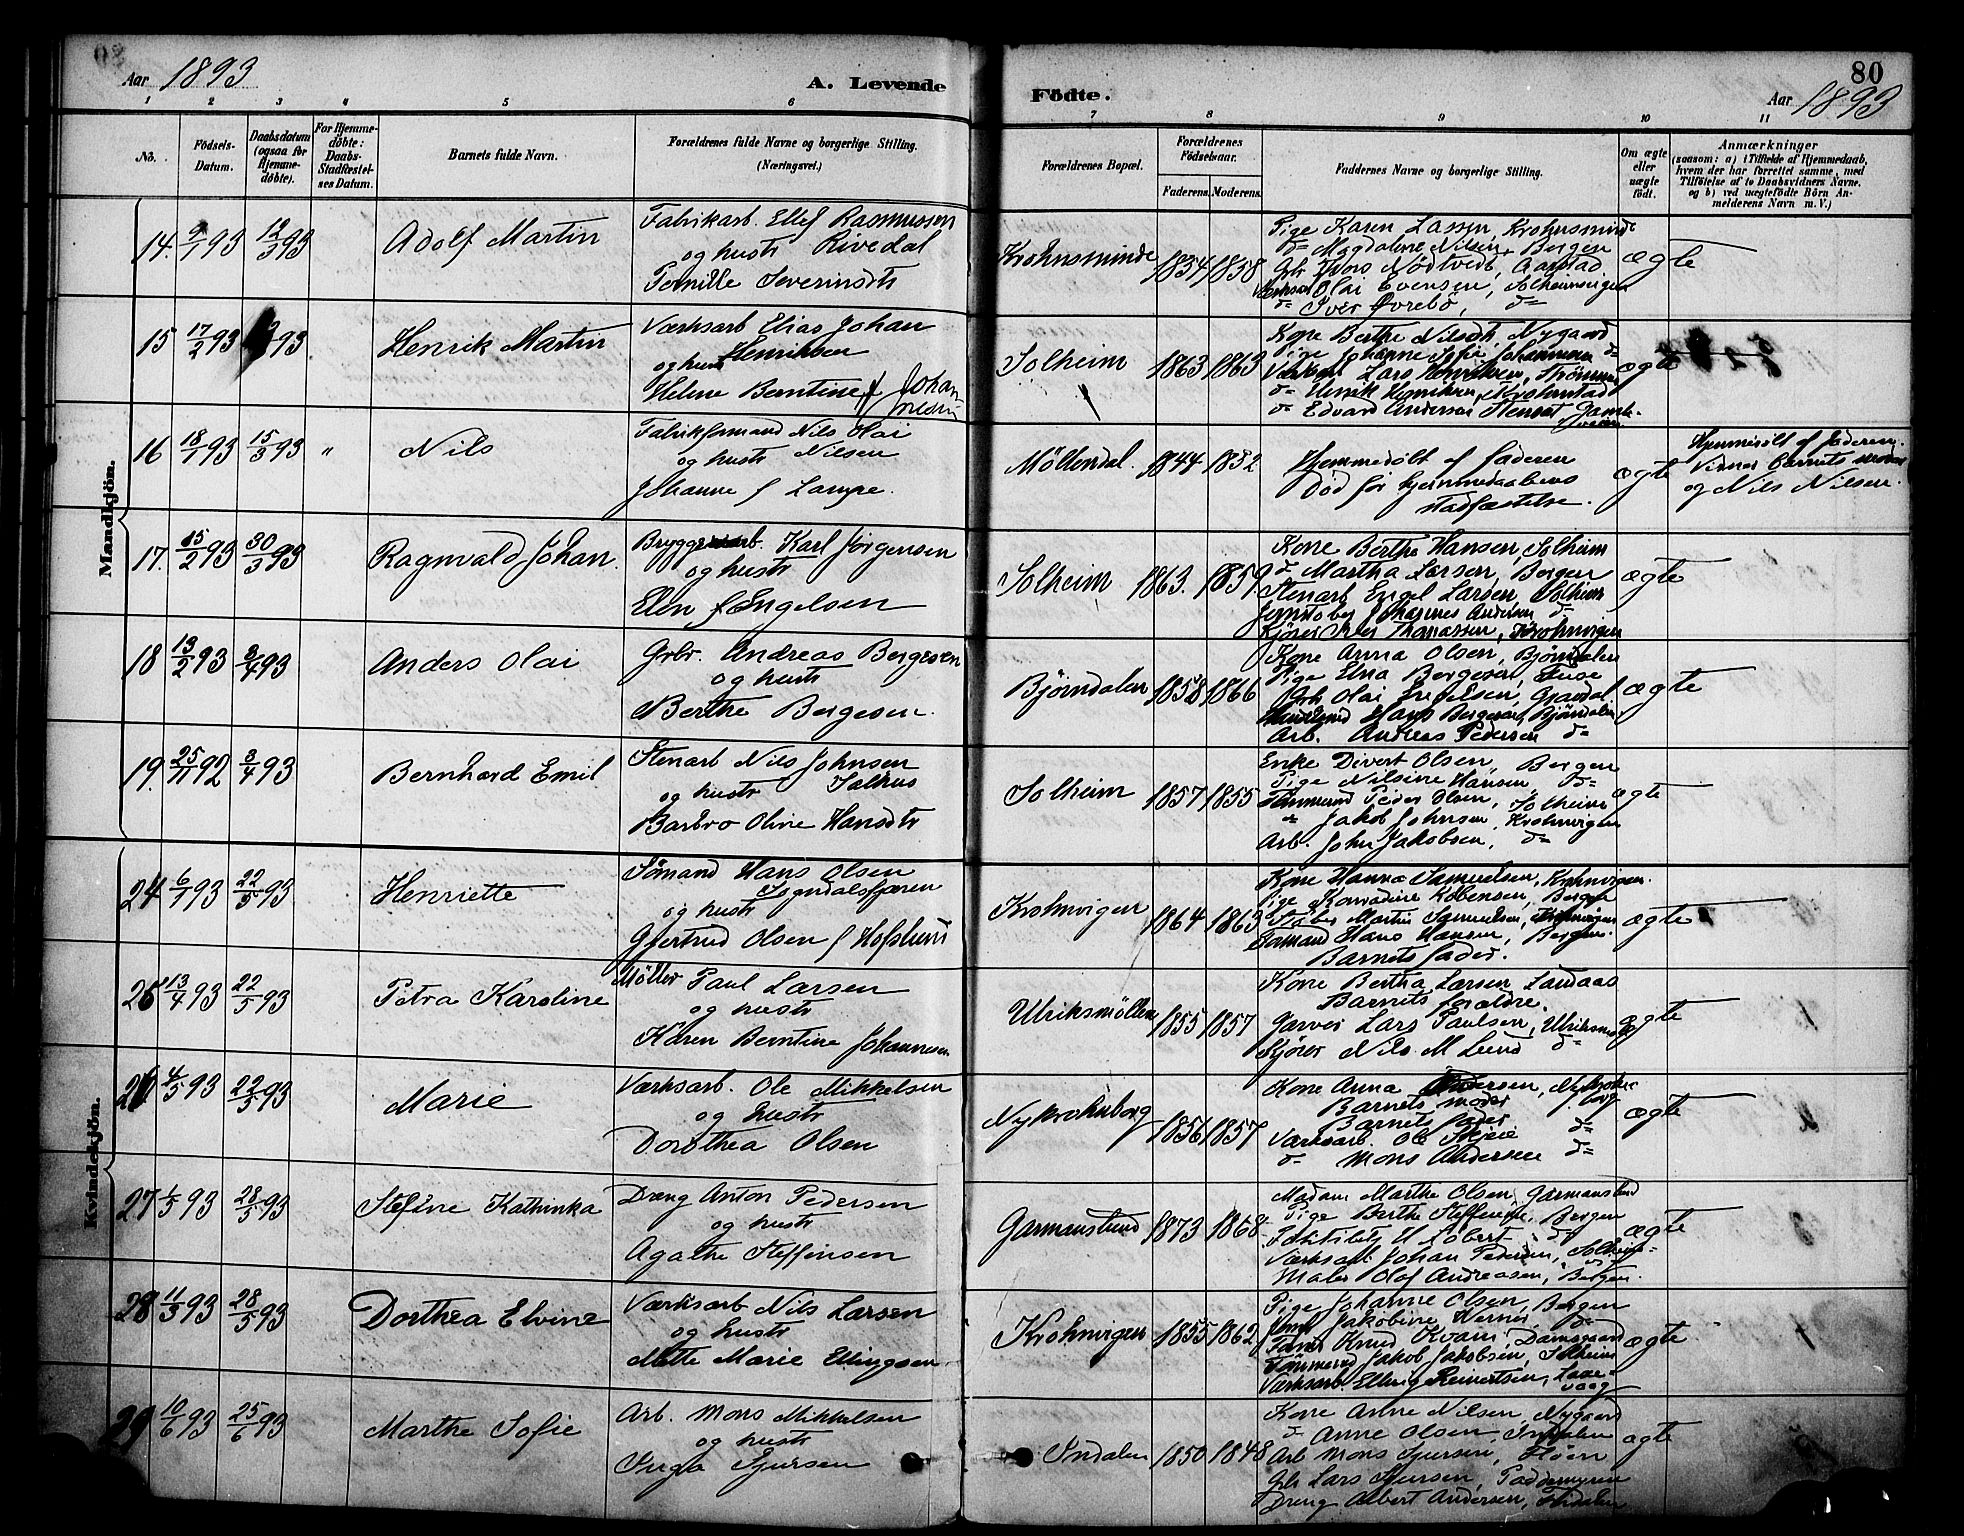 80
Aar 1893
A. Levende
Födte.
Aar 1893
1 2 3 4 5 6 7 8 9 10 11
No.
Födsels-Datum.
Daabsdatum (ogsaa for Hjemme-döbte).
For Hjemme-döbte: Daabs-Stadfæstel-ses Datum.
Barnets fulde Navn.
Forældrenes fulde Navne og borgerlige Stilling. (Næringsvei.)
Forældrenes Bopæl.
Forældrenes Födselsaar.
Faderens. Moderens.
Faddernes Navne og borgerlige Stilling.
Om ægte eller uægte födt.
Anmærkninger
(saasom: a) i Tilfælde af Hjemmedaab,
hvem der har forrettet samme, med
Tilföielse af to Daabsvidners Navne.
og b) ved uægtefödte Börn An-
melderens Navn m. V.)
Mandkjön.
14. 9/1 93 12/3 93 Adolf Martin
Fabrikarb Ellef Rasmussen
og hustr Rivedal
Pernille Severinsdtr
Krohnsminde 1834 1838
Pige Karen Lassen, Krohnsminde
d= Magdalene Nilsen, Bergen
Gbr Thors Nødtvedt, Aarstad
Olai Evensen, Solheimsvigen
d= Iver Øvrebö, d=
ægte
15 17/2 93 93 Henrik Martin
Værksarb Elias Johan
og hustr Henriksen
Helene Berntine f Johan-
nesen
Solheim 1863 1863
Kone Berthe Nilsdtr, Nygaard
Pige Johanne Sofie Johannesen d=
Værksarb Lars Henriksen, Strömmen
d= Henrik Henriksen, Krohnstad
d= Edvard Andersen
ægte
16 18/1 93 15/3 93 " Nils
Fabrikformand Nils Olai
og hustr Nilsen
Johanne f Lampe.
Möllendal. 1844 1852
Hjemmedöbt af faderen
Död för hjemmedaabens
stadfæstelse.
ægte
Hjemmedöbt af faderen.
Vidner barnets moder
og Nils Nilsen.
17. 15/2 93 30/3 93 Ragnvald Johan.
Bryggeriarb. Karl Jörgensen
og hustr
Elen f Engelsen
Solheim 1863. 1859
Kone Berthe Hansen, Solheim
d= Martha Larsen, Bergen
Stenarb Engel Larsen, Solheim
Jernstöber Johannes Andersen d=
Kjörer Iver Thomassen, Krohnvigen
ægte
18 13/2 93 3/4 93 Anders Olai
Gbr. Andreas Bergesen
og hustr
Berthe Bergesen.
Björndalen 1858 1866
Kone Anna Olsen, Björndalen
Pige Elna Bergesen,
Gbr Olai Engelsen,
Hans Bergesen, Björndalen
Arb. Andreas Pedersen d=
ægte
19. 25/11 92 3/4 93 Bernhard Emil
Stenarb Nils Johnsen
og hustr Salhus
Barbro Oline Hansdtr
Solheim 1857 1855
Enke Divert Olsen, Bergen
Pige Nilsine Hansen d=
Tömmermd Peder Olsen, Solheim
d= Jakob Johnsen, Krohnvigen
Arb. John Jakobsen, d=
ægte
Kvindekjön.
24 6/1 93 22/5 93 Henriette
Sömand Hans Olsen
Sogndalsfjæren
og hustr
Gjertrud Olsen f Hofslund
Krohnvigen 1864 1863
Kone Hanna Samuelsen, Krohnvigen.
Pige Konradine Kobensen, Bergen
Stöber Martin Samuelsen, Krohnvigen
Sömand Hans Hansen, Bergen.
Barnets fader.
ægte
25 13/4 93 22/5 93 Petra Karoline
Möller Paul Larsen
og hustr
Karen Berntine Johannesen
Ulriksmöllen 1855 1857
Kone Bertha Larsen, Landaas
Barnets forældre.
Garver Lars Paulsen, Ulriksm
Kjörer Nils M Lund d=
ægte
26 4/5 93 22/5 93 Marie
Værksarb. Ole Mikkelsen
og hustr
Dorothea Olsen
Nykrohnborg 1856 1857
Kone Anna Andersen, Nykrohn-
borg
Barnets moder
Barnets fader d=
Værksarb. Ole Skjeie
d= Mons Andersen d=
ægte
27 1/5 93 28/5 93 Stefine Kathinka
Dræng Anton Pedersen
og hustr
Agathe Steffensen
Garmanslund 1873 1868
Madam Marthe Olsen, Garmanslund
Pige Berthe Steffensen, Bergen
Værksarb Johan Pedersen, Solheims-
Maler Olof Andreasen, Bergen.
ægte
28 11/3 93 28/5 93 Dorthea Elvine
Værksarb Nils Larsen
og hustr
Mette Marie Ellingsen
Krohnvigen 1855 1862
Pige Johanne Olsen, Bergen
Jakobine Wernes, d=
Knud Kvam, Damsgaard
Tömmermd Jakob Jakobsen, Solheim
Værksarb. Elling Reinertsen, Laxe-
vaag
ægte
29 10/6 93 25/6 93 Marthe Sofie
Arb. Mons Mikkelsen
og hustr
Inga Sjursen
Indalen 1850 1848
Kone Anne Nilsen, Nygaard
d= Anne Olsen, Indalen
Arb Mons Sjursen, Flöen
Gbr Lars Sjursen, Paddemyren
Dreng Albert Andersen, Indalen
ægte